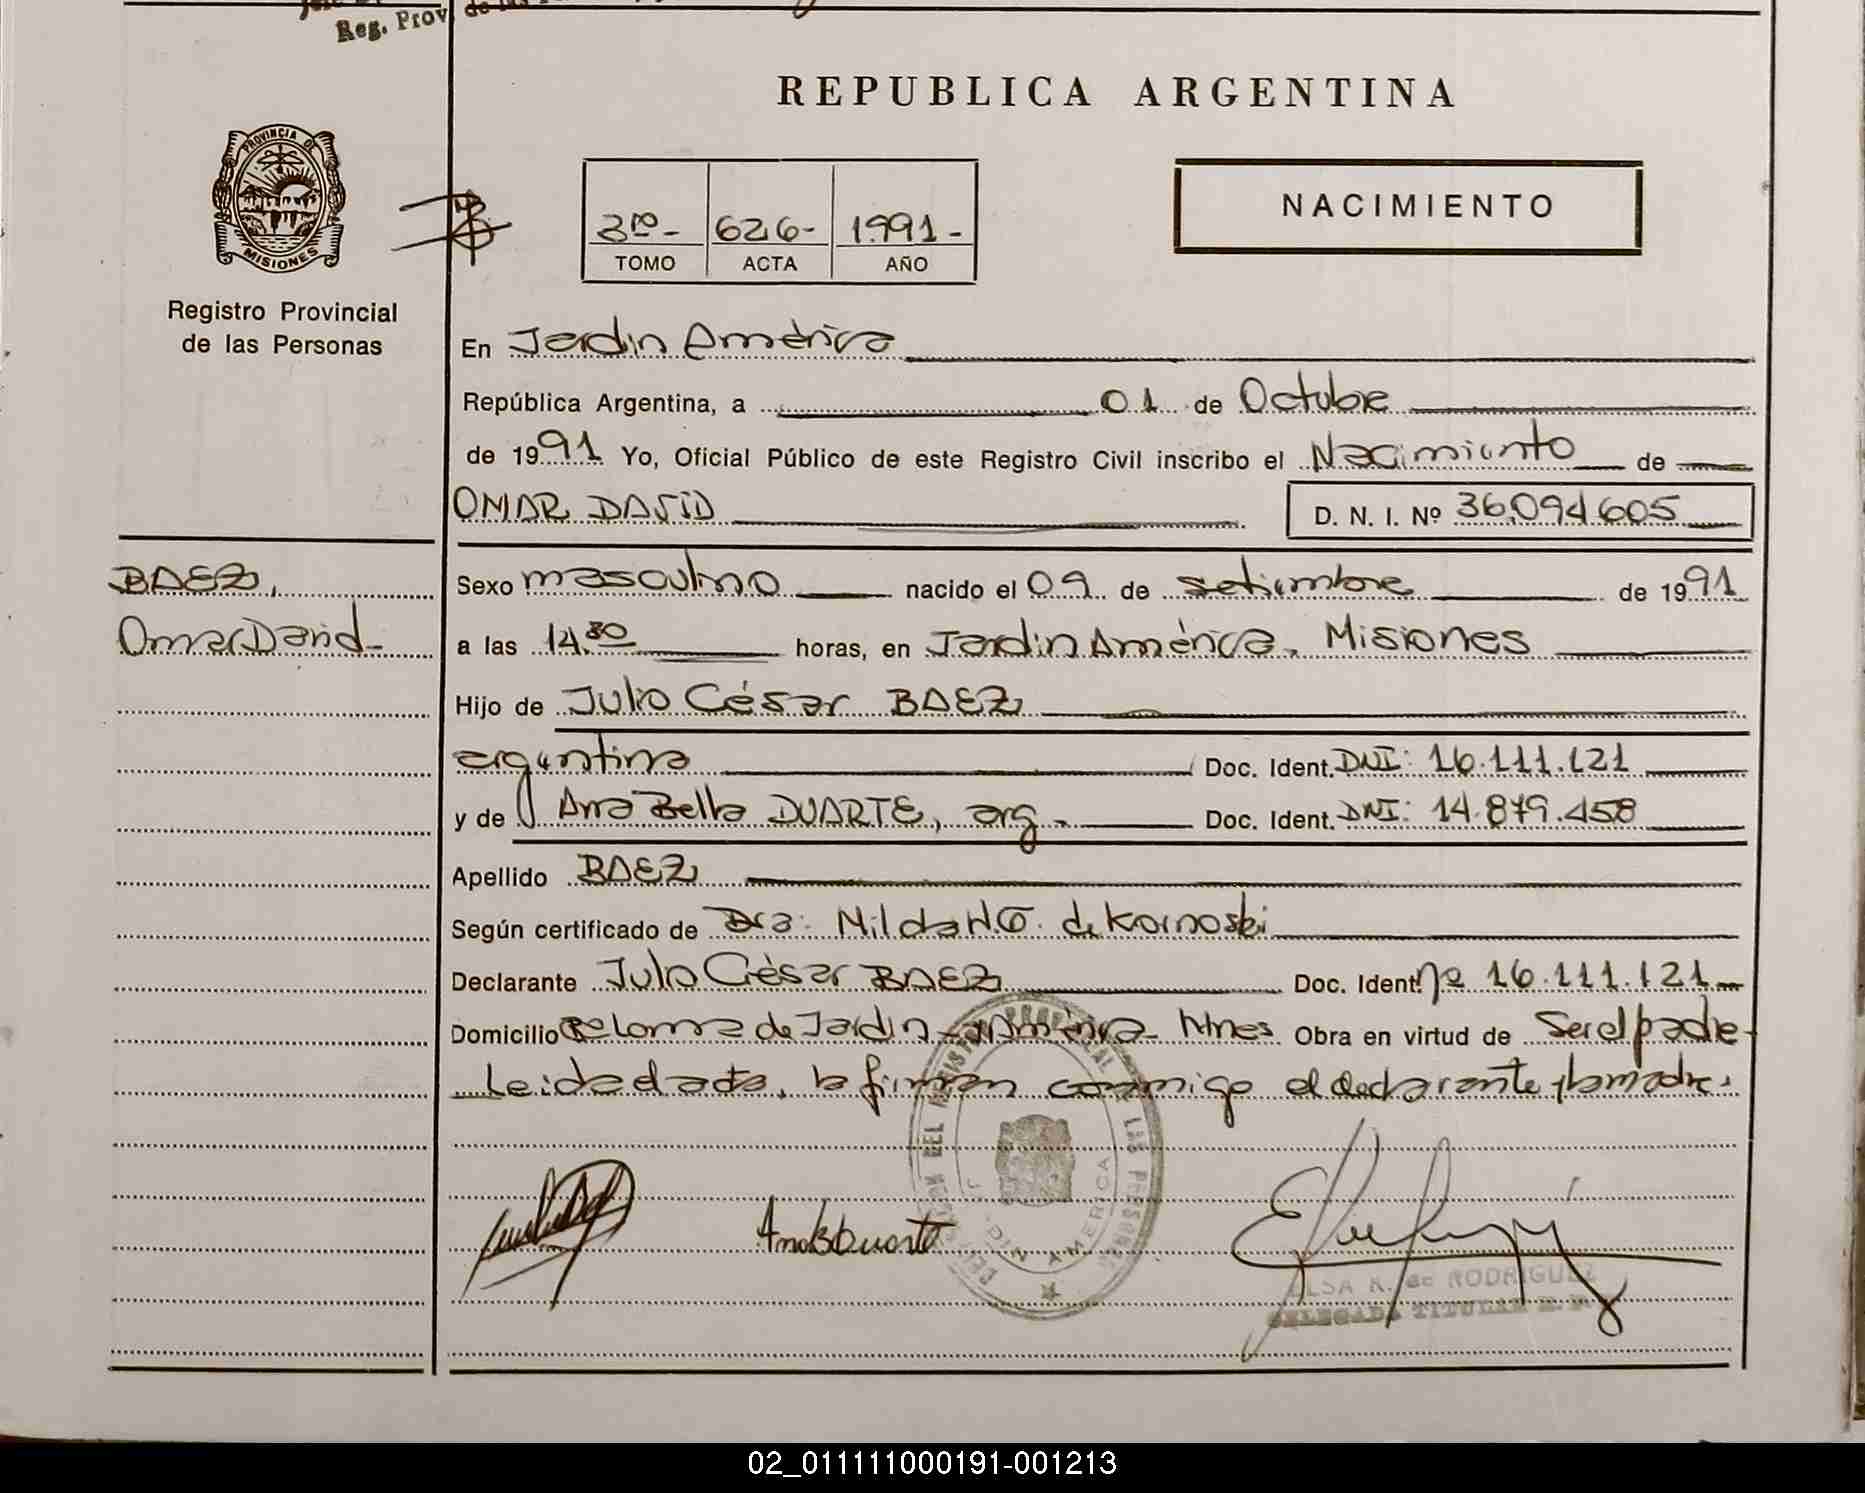 Reg. Prov de las
REPUBLICA ARGENTINA
PROVINCIA DE
MISIONES
Registro Provincial
de las Personas
3ro- 626- 1991-
TOMO ACTA AÑO
NACIMIENTO
En Jardin América
República Argentina, a 01 de Octubre
de 1991 Yo, Oficial Público de este Registro Civil inscribo el Nacimiento de
OMAR DAVID D. N. I. Nº 36.094.605
BAEZ,
Omar David-
Sexo masculino nacido el 09 de setiembre de 1991
a las 14.30 horas, en Jardin América, Misiones
Hijo de Julio César BAEZ
argentino Doc. Ident. DNI: 16.111.121
y de Ana Bella DUARTE, arg. Doc. Ident. DNI: 14.879.458
Apellido BAEZ
Según certificado de Dra: Nilda H.G. de Kornoski
Declarante Julio César BAEZ Doc. Ident. Nº 16.111.121
Domicilio Loma de Jardin América Mnes Obra en virtud de Ser el padre-
Leida el acta, la firman conmigo el declarante y la madre.
DELEGACION DEL REGISTRO PROVINCIAL DE LAS PERSONAS
JARDIN AMERICA
AnaBDuarte
ELSA R. de RODRIGUEZ
DELEGADA TITULAR R. P.
02_011111000191-001213